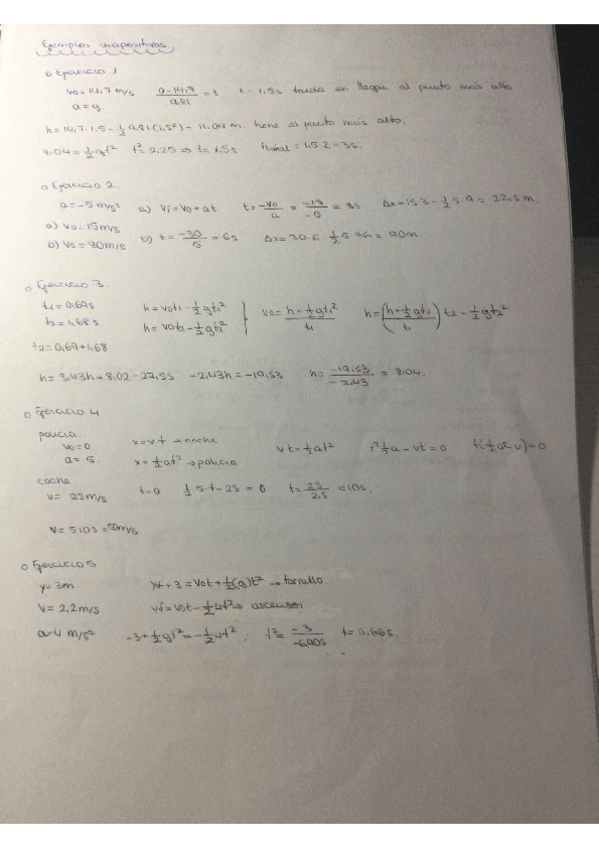 Ejemplos diapositivas
o Ejercicio 1
v0 = 14,7 m/s   0-14,7/9,81 = t   t = 1,5s tarda en llegar al punto más alto
a = g.
h = 14,7·1,5 - 1/2 9,81(1,5²) = 11.04 m. tiene el punto más alto.
= 1/2 gt²   t² = 2,25 ⇒ t = 1,5s   ttotal = 1,5·2 = 3s.
o Ejercicio 2.
a = -5 m/s²   a) vf = v0 + at   t = -v0/a = -15/-5 = 3s   Δx = 15·3 - 1/2 5·9 = 22,5 m.
a) v0 = 15m/s
b) v0 = 30m/s   b) t = -30/5 = 6s   Δx = 30·6 1/2 5·36 = 90m
o Ejercicio 3
t1 = 0,69s   h = v0t1 - 1/2 gt1²   v0 = h + 1/2 gt1²/t1   h = (h + 1/2 gt1/t1) t2 - 1/2 gt2²
t2 = 1,68s   h = v0t2 - 1/2 gt2²
t2 = 0,69 + 1,68
h = 3,43h + 8,02 - 27,55   -2,43h = -19,53   h = -19,53/-2,43 = 8,04.
o Ejercicio 4
policia
v0 = 0   x = v·t → coche   vt = 1/2 at²   t² 1/2 a - vt = 0   t(1/2 at - v) = 0
a = 5.   x = 1/2 at² → policia
coche
v = 25m/s   t = 0   1/2 5·t - 25 = 0   t = 25/2,5 = 10s.
v = 5·10s = 50m/s
o Ejercicio 5
y = 3m   yf + 3 = v0t + 1/2 (g)t² → tornillo
v = 2,2m/s   vf = v0t - 1/2 4t² → ascensor
a = 4 m/s²   -3 + 1/2 gt² = -1/2 4t² ;   t² = -3/-6,905   t = 0,66s.